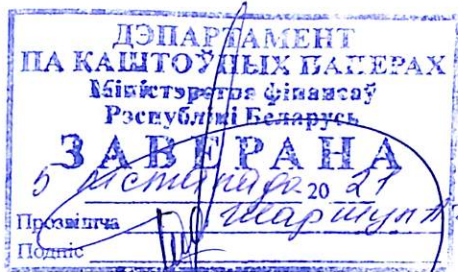 ДЭПАРТАМЕНТ
ПА КАШТОЎНЫХ ПАПЕРАХ
Міністэрства фінансаў
Рэспублікі Беларусь
ЗАВЕРАНА
5 лістапада 20 21
Прозвішча
Подпіс